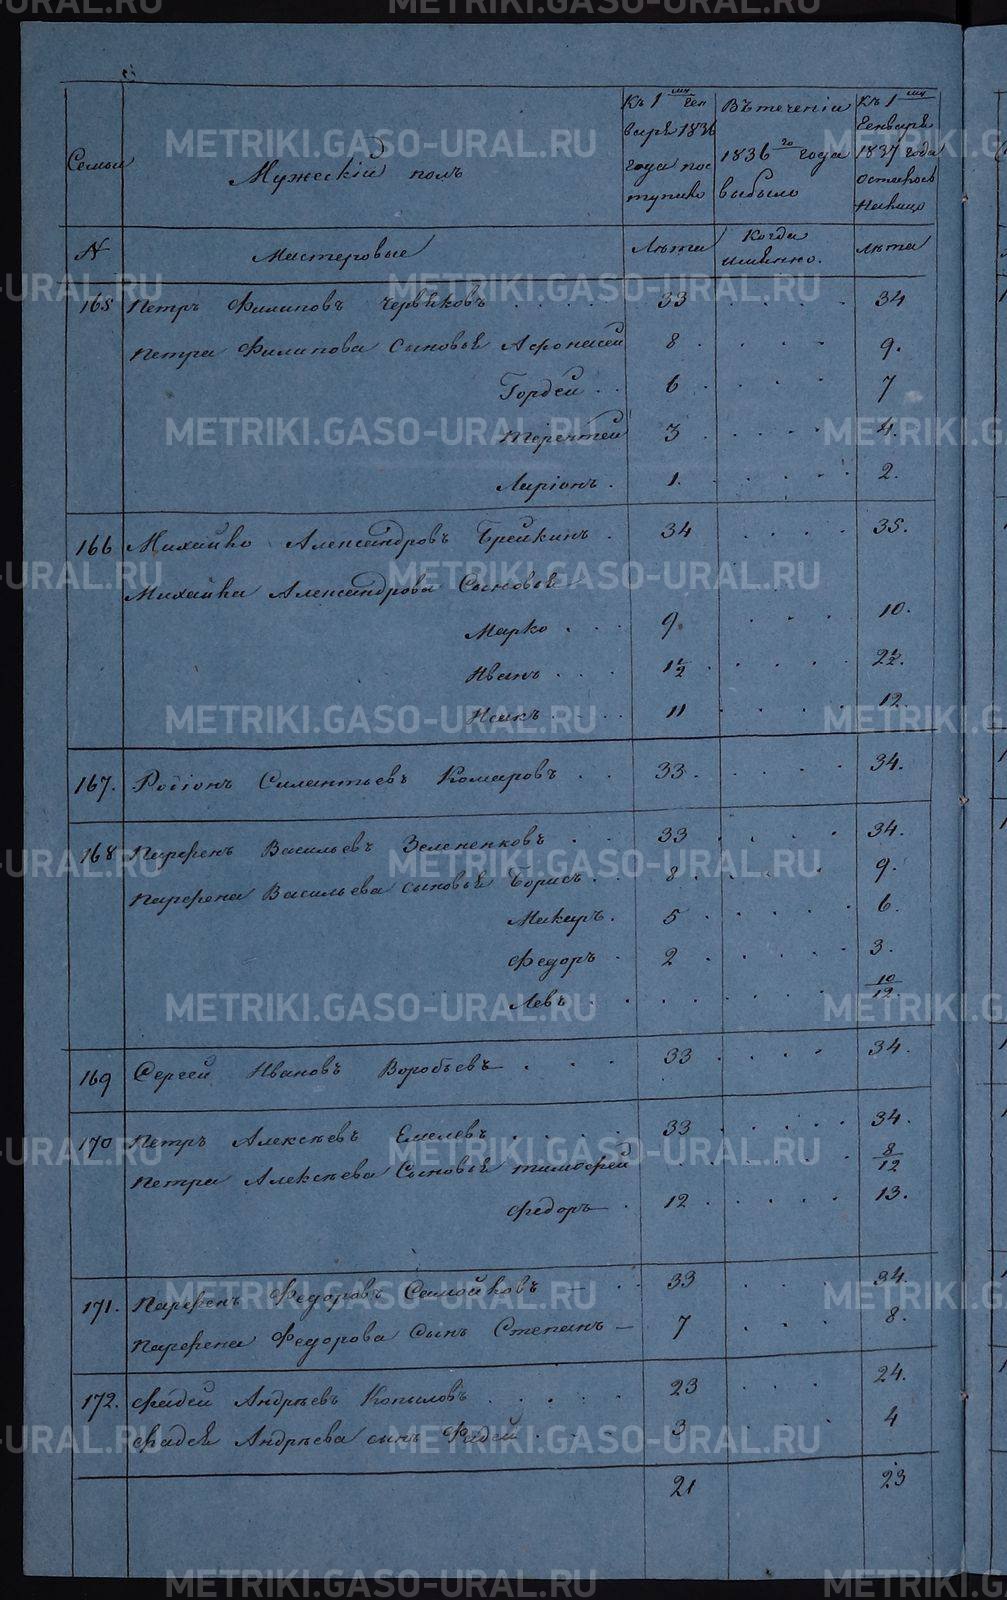 Семьи
Мужескій полъ
Къ 1му Ген
варя 1836
года пос
тупило
Въ теченіи
1836го года
выбыло
Къ 1му
Генваря
1837 года
осталось
налицо
N
Мастеровые
Лѣта
Когда
именно.
Лѣта
165 Петръ Филиповъ Червяковъ 33 34
Петра Филипова Сыновья Афонасей 8 9.
Гордей 6 7
Терентей 3 4.
Ларіонъ 1. 2.
166 Михайло Александровъ Брейкинъ 34 35.
Михайла Александрова Сыновья
Марко 9 10.
Иванъ 1½ 2½.
Исакъ 11 12.
167. Родіонъ Силантьевъ Комаровъ 33 34.
168 Парфенъ Васильевъ Зелененковъ 33 34.
Парфена Васильева сыновья Борисъ 8 9.
Макаръ 5 6.
Федоръ 2 3.
Левъ 10/12
169 Сергей Ивановъ Воробьевъ 33 34.
170 Петръ Алексѣевъ Емелевъ 33 34.
Петра Алексѣева Сыновья Тимофей 8/12
Федоръ 12 13.
171. Парфенъ Федоровъ Самойковъ 33 34.
Парфена Федорова Сынъ Степанъ 7 8.
172. Фадей Андрѣевъ Копыловъ 23 24.
Фадея Андрѣева сынъ Фадей 3 4
21 23
METRIKI.GASO-URAL.RU